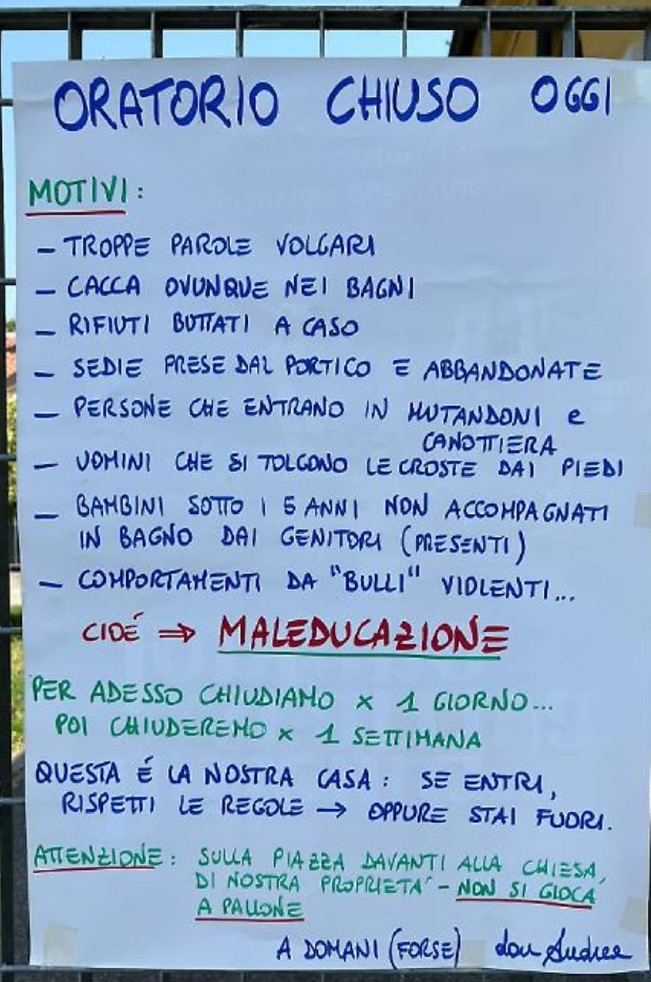 ORATORIO CHIUSO OGGI
MOTIVI:
– TROPPE PAROLE VOLGARI
– CACCA OVUNQUE NEI BAGNI
– RIFIUTI BUTTATI A CASO
– SEDIE PRESE DAL PORTICO E ABBANDONATE
– PERSONE CHE ENTRANO IN MUTANDONI e
CANOTTIERA
– UOMINI CHE SI TOLGONO LE CROSTE DAI PIEDI
– BAMBINI SOTTO I 5 ANNI NON ACCOMPAGNATI
IN BAGNO DAI GENITORI (PRESENTI)
– COMPORTAMENTI DA "BULLI" VIOLENTI...
CIOÉ ⇒ MALEDUCAZIONE
PER ADESSO CHIUDIAMO × 1 GIORNO...
POI CHIUDEREMO × 1 SETTIMANA
QUESTA É LA NOSTRA CASA: SE ENTRI,
RISPETTI LE REGOLE → OPPURE STAI FUORI.
ATTENZIONE: SULLA PIAZZA DAVANTI ALLA CHIESA,
DI NOSTRA PROPRIETA' - NON SI GIOCA
A PALLONE
A DOMANI (FORSE) don Andrea